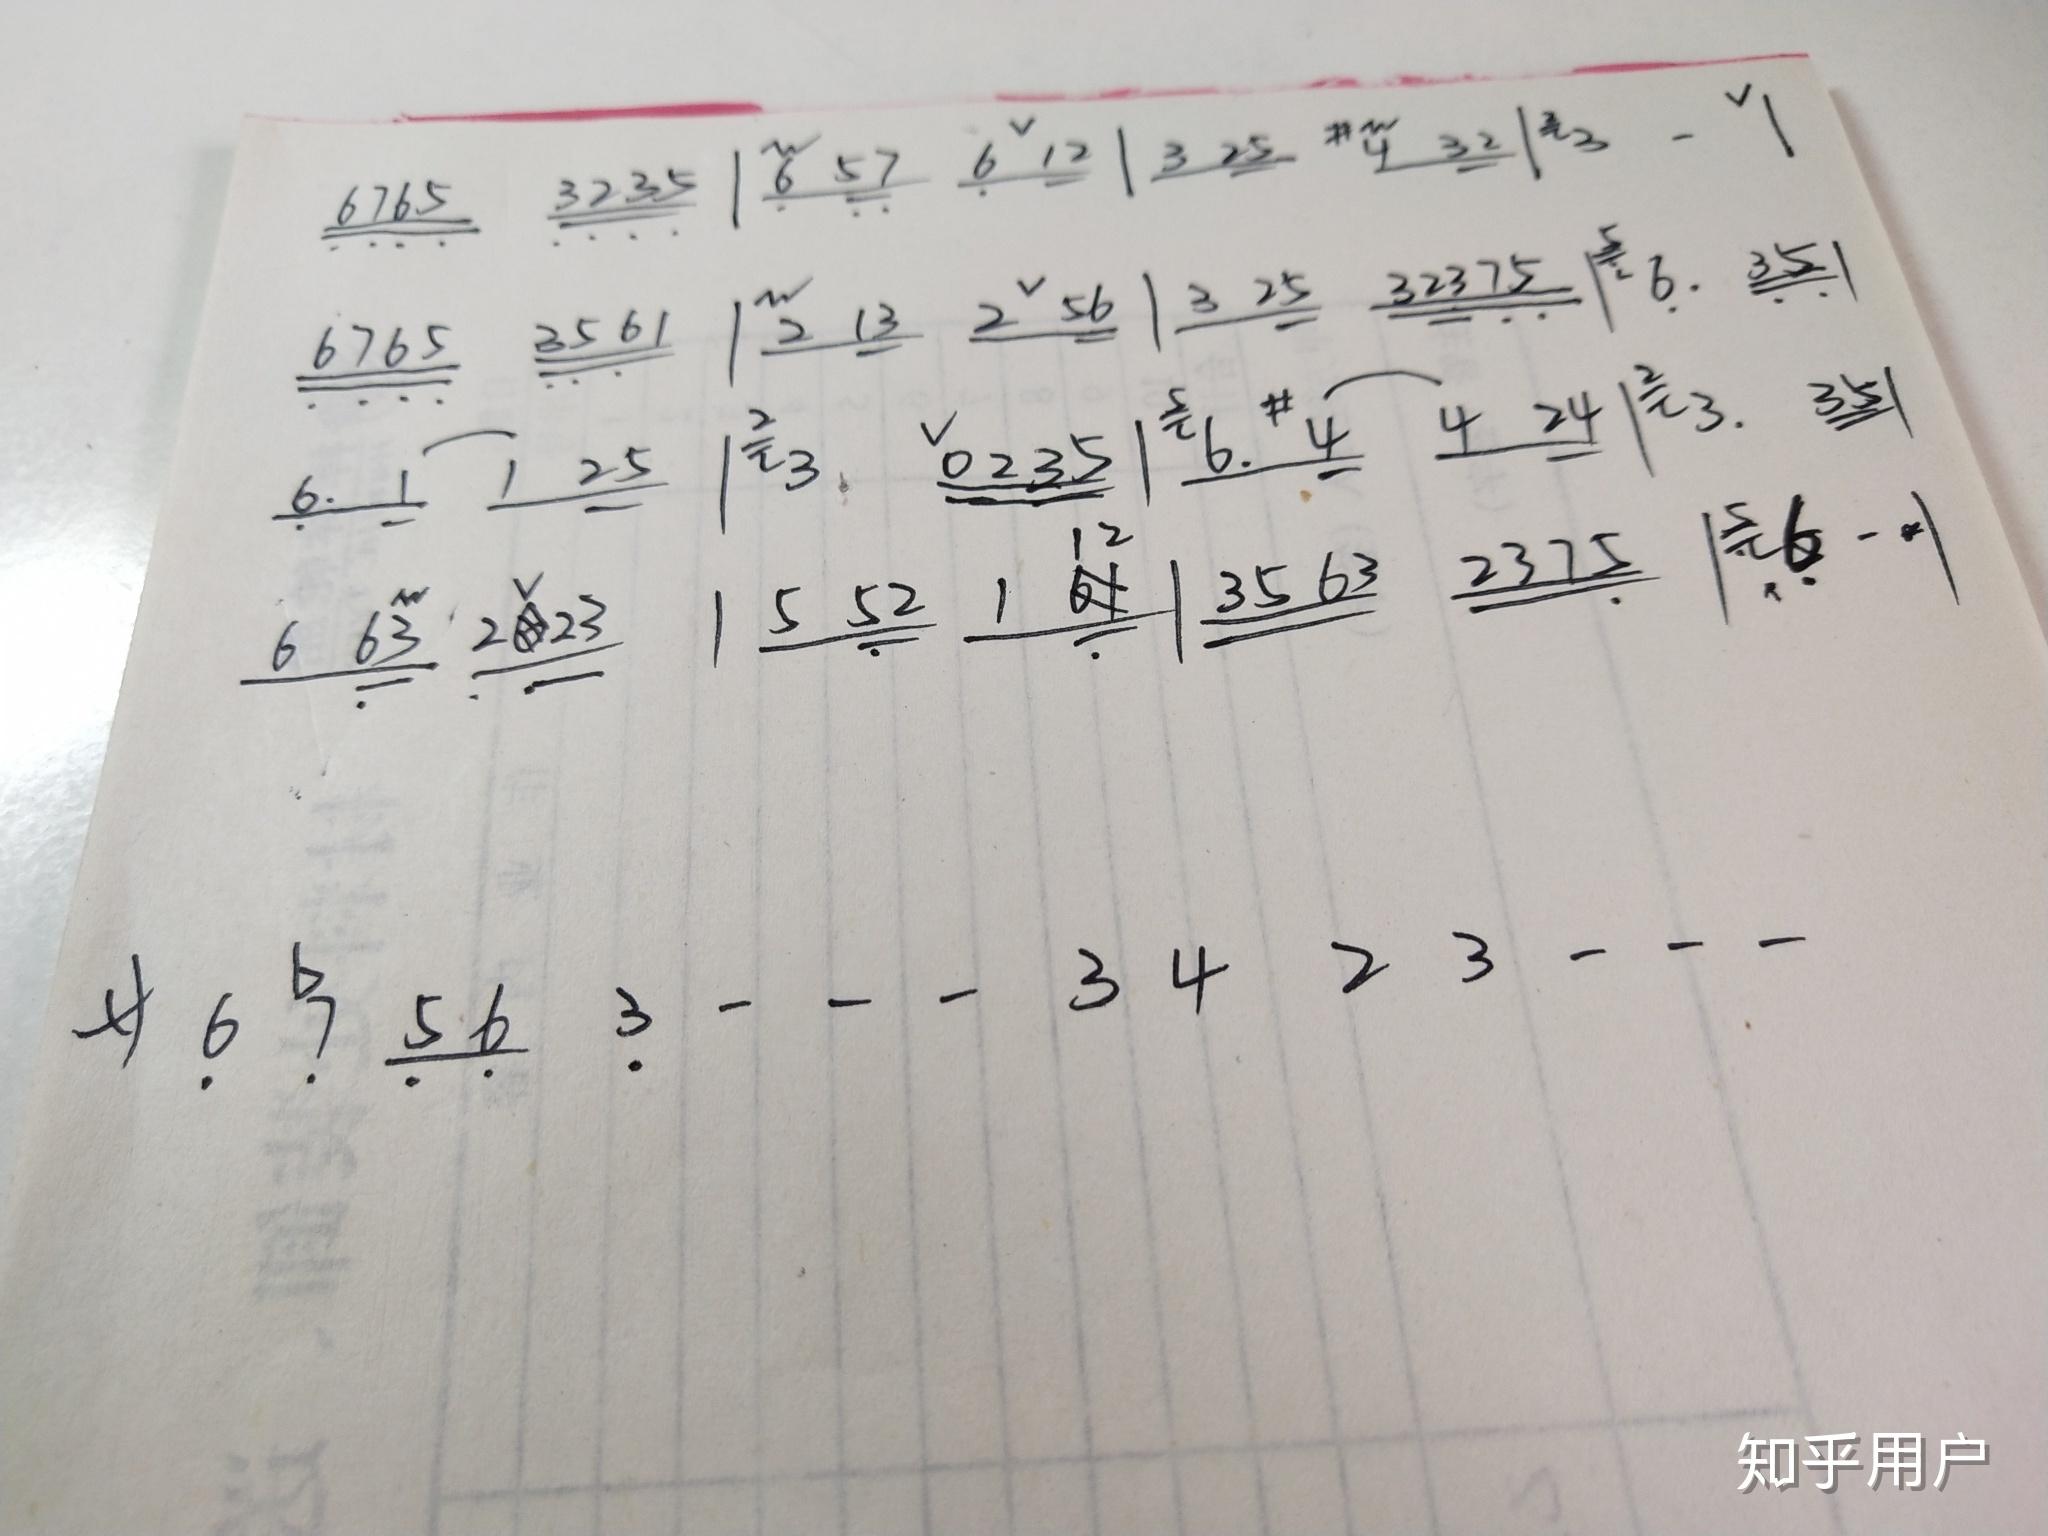 6765 3235 | 6 57 6 ∨ 12 | 3 25 #4 32 | 3 - ∨ |
6765 3561 | 2 13 2 ∨ 56 | 3 25 32375 | 5 6. 35 |
6. 1 1 25 | 2 3. ∨ 0235 | 5 6. #4 4 24 | 2 3. 35 |
12
6 63 2 ∨ 23 | 5 52 1 | 3563 2375 | 5 6 - |
サ 6 b7 56 3 - - - 3 4 2 3 - - -
知乎用户